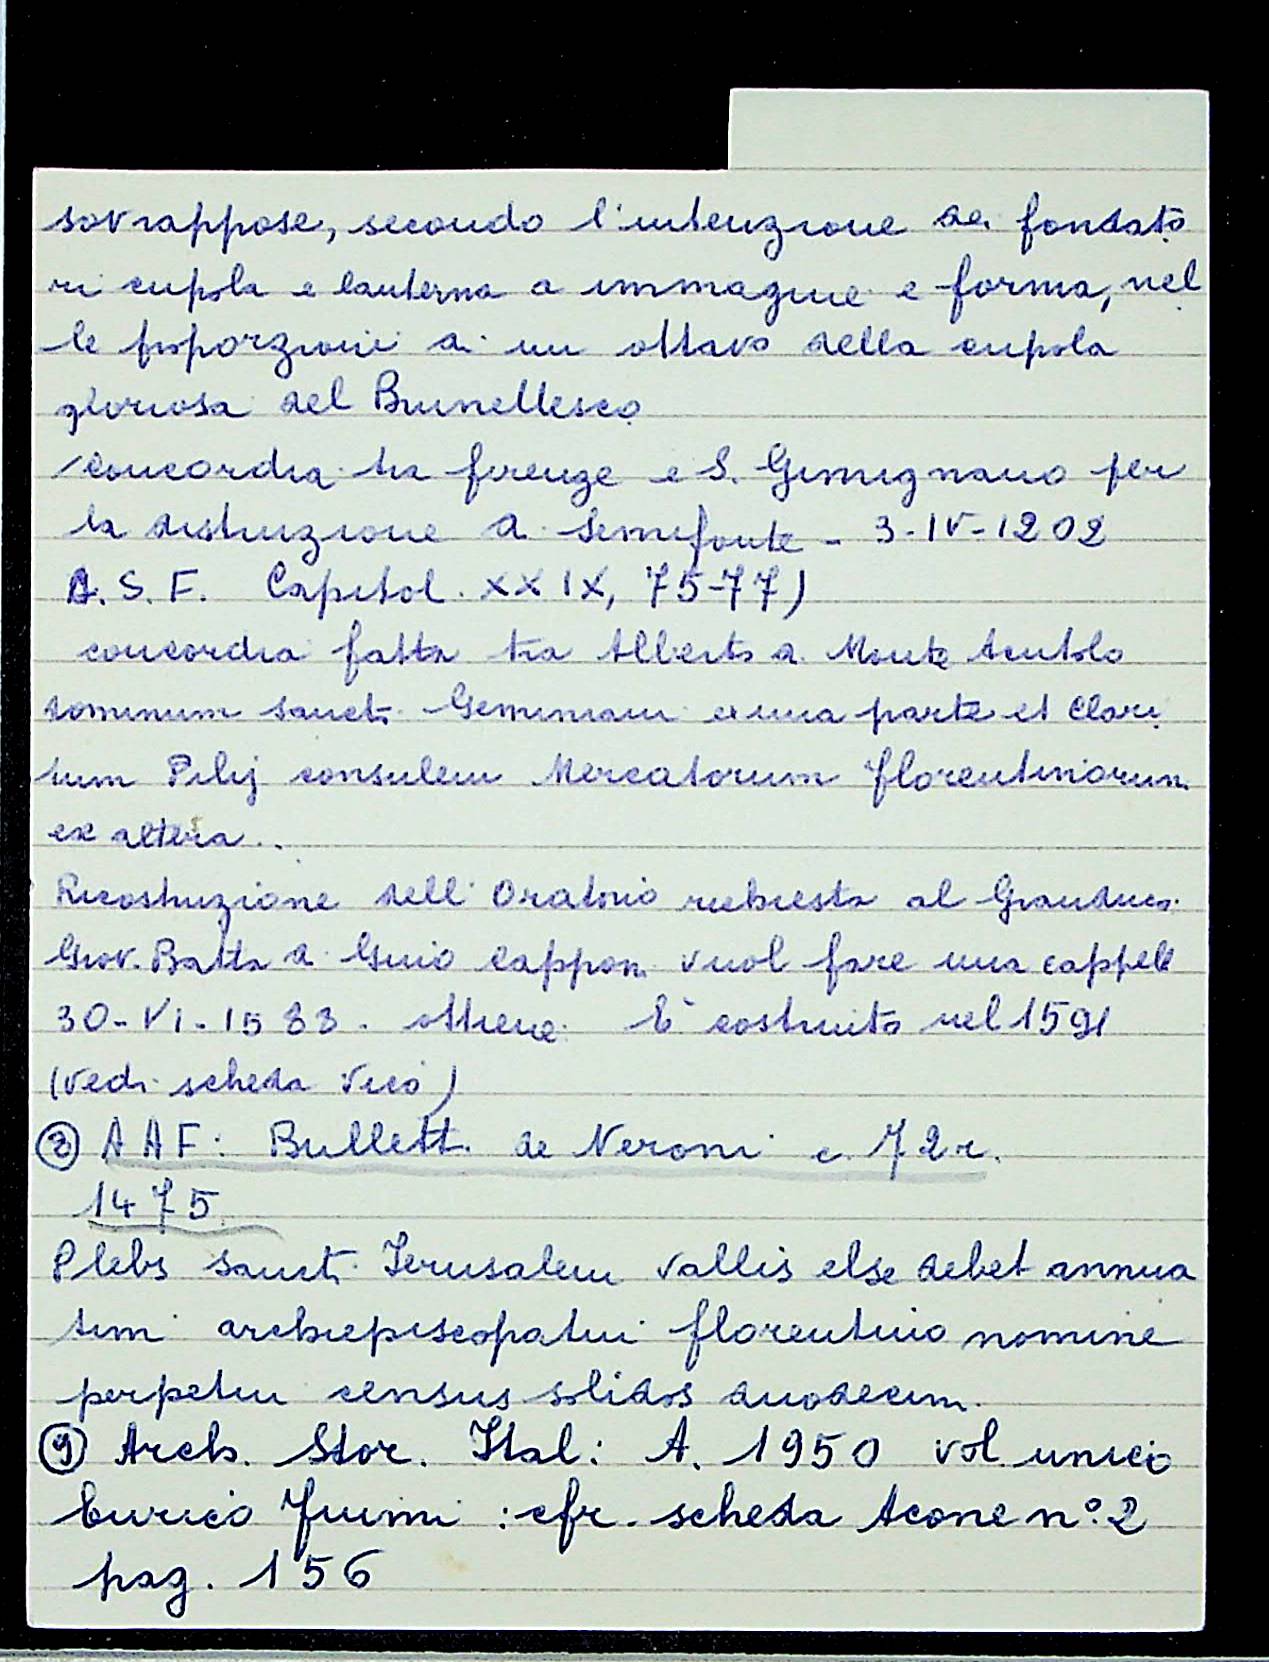 sovrappose, secondo l'intenzione dei fondato
ri cupola e lanterna a immagine e forma, nel
le proporzioni di un ottavo della cupola
gloriosa del Brunellesco
(concordia tra firenze e S. Gimignano per
la distruzione di Semifonte - 3-IV-1202
A.S.F. Capitol. XXIX, 75-77)
concordia fatta tra Alberto di Monte Acutolo
dominum sancti Geminiani ex una parte et Clari
tum Pilij consulem Mercatorum florentinorum
ex altera..
Ricostruzione dell'Oratorio richiesta al Granduca.
Giov. Batta di Gino Capponi vuol fare una cappell
30-VI-1583. ottiene. È costruito nel 1591
(vedi scheda Vico)
⑧ AAF: Bullett. de Neroni c. 72r.
1475
Plebs sancti Jerusalem vallis else debet annua
tim archiepiscopatui florentino nomine
perpetui census solidos duodecim.
⑨ Arch. Stor. Ital: A. 1950 vol. unico
Enrico Fiumi: cfr. scheda Acone n° 2
pag. 156